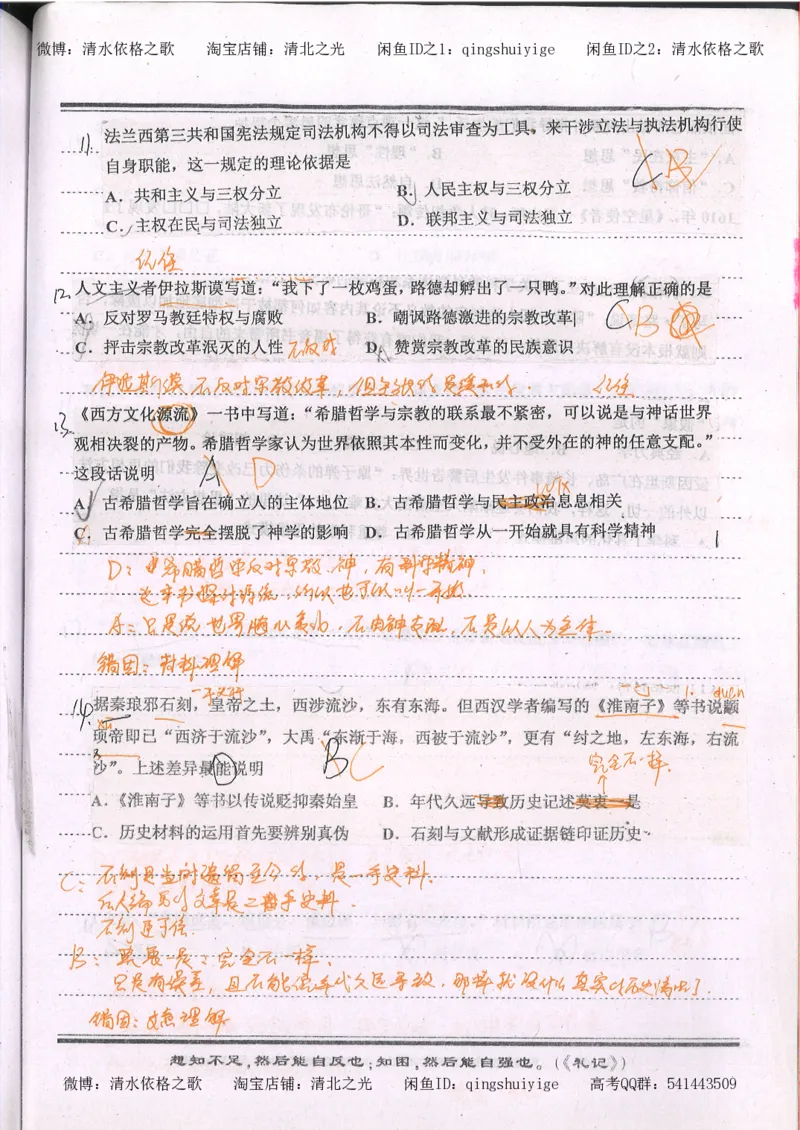 微博：清水依格之歌 淘宝店铺：清北之光 闲鱼ID之1：qingshuiyige 闲鱼ID之2：清水依格之歌
11. 法兰西第三共和国宪法规定司法机构不得以司法审查为工具，来干涉立法与执法机构行使
自身职能，这一规定的理论依据是
A．共和主义与三权分立 B．人民主权与三权分立
C．主权在民与司法独立 D．联邦主义与司法独立
C B
12. 人文主义者伊拉斯谟写道：“我下了一枚鸡蛋，路德却孵出了一只鸭。”对此理解正确的是
A．反对罗马教廷特权与腐败 B．嘲讽路德激进的宗教改革
C B
C．抨击宗教改革泯灭的人性 不反对 D．赞赏宗教改革的民族意识
伊拉斯谟不反对宗教改革，但
13. 《西方文化源流》一书中写道：“希腊哲学与宗教的联系最不紧密，可以说是与神话世界
观相决裂的产物。希腊哲学家认为世界依照其本性而变化，并不受外在的神的任意支配。”
这段话说明 A D
A．古希腊哲学旨在确立人的主体地位 B．古希腊哲学与民主政治息息相关
C．古希腊哲学完全摆脱了神学的影响 D．古希腊哲学从一开始就具有科学精神
D：古希腊哲学反对宗教、神，有科学精神，
错因：材料理解
一手史料
14. 据秦琅邪石刻，皇帝之土，西涉流沙，东有东海。但西汉学者编写的《淮南子》等书说颛
顼帝即已“西济于流沙”，大禹“东渐于海，西被于流沙”，更有“纣之地，左东海，右流
沙”。上述差异最能说明 B C
完全不一样
A．《淮南子》等书以传说贬抑秦始皇 B．年代久远导致历史记述莫衷一是
C．历史材料的运用首先要辨别真伪 D．石刻与文献形成证据链印证历史
C：石刻是当时遗留至今的，是一手史料．
后人编写的文章是二手史料．
石刻更可信．
B：莫衷一是：完全不一样，
只是有误差，且不能说年代久远导致，那样就没什么真实
错因：文意理解
想知不足，然后能自反也；知困，然后能自强也。（《礼记》）
微博：清水依格之歌 淘宝店铺：清北之光 闲鱼ID：qingshuiyige 高考QQ群：541443509